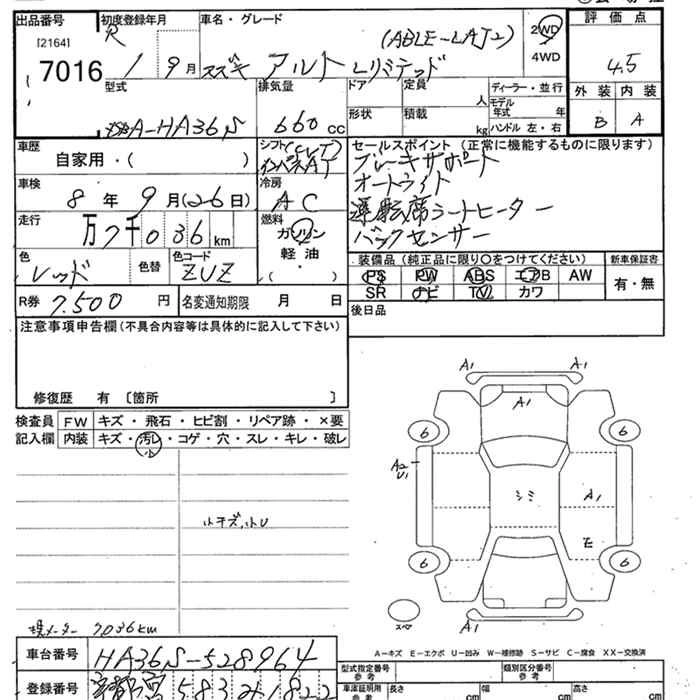 出品番号 初度登録年月 車名・グレード 評価点
[2164] R (ABLE-LAJ2) 2WD
7016 1年 9月 スズキ アルト Lリミテッド 4WD 4.5
型式 排気量 ドア 定員 人 ディーラー・並行 外装 内装
A-HA36S 660cc 形状 積載 kg モデル年式 年 B A
ハンドル 左・右
車歴 シフト セールスポイント (正常に機能するものに限ります)
自家用・( ) ブレーキサポート
車検 冷房 オートライト
8年 9月(26日) AC 運転席シートヒーター
走行 燃料 バックセンサー
万7千036km ガソリン
軽油・( )
色 色替 色コード 装備品 (純正品に限り○をつけてください) 新車保証書
レッド ZUZ PS PW ABS エアB AW 有・無
SR ナビ TV カワ
R券 7,500円 名変通知期限 月 日 後日品
注意事項申告欄(不具合内容等は具体的に記入して下さい)
修復歴 有 [箇所 ]
検査員記入欄 FW キズ・飛石・ヒビ割・リペア跡・×要
内装 キズ・汚レ・コゲ・穴・スレ・キレ・破レ
小
A1 A1
A1
6 6
A2
U1 シミ A1
小キズ,小U
E
6 6
スペア A1
現メーター 7036km
A-キズ E-エクボ U-凹み W-補修跡 S-サビ C-腐食 XX-交換済
車台番号 HA36S-528964 型式指定番号 参考 類別区分番号 参考
登録番号 583 1822 車庫証明用 参考 長さ cm 幅 cm 高さ cm